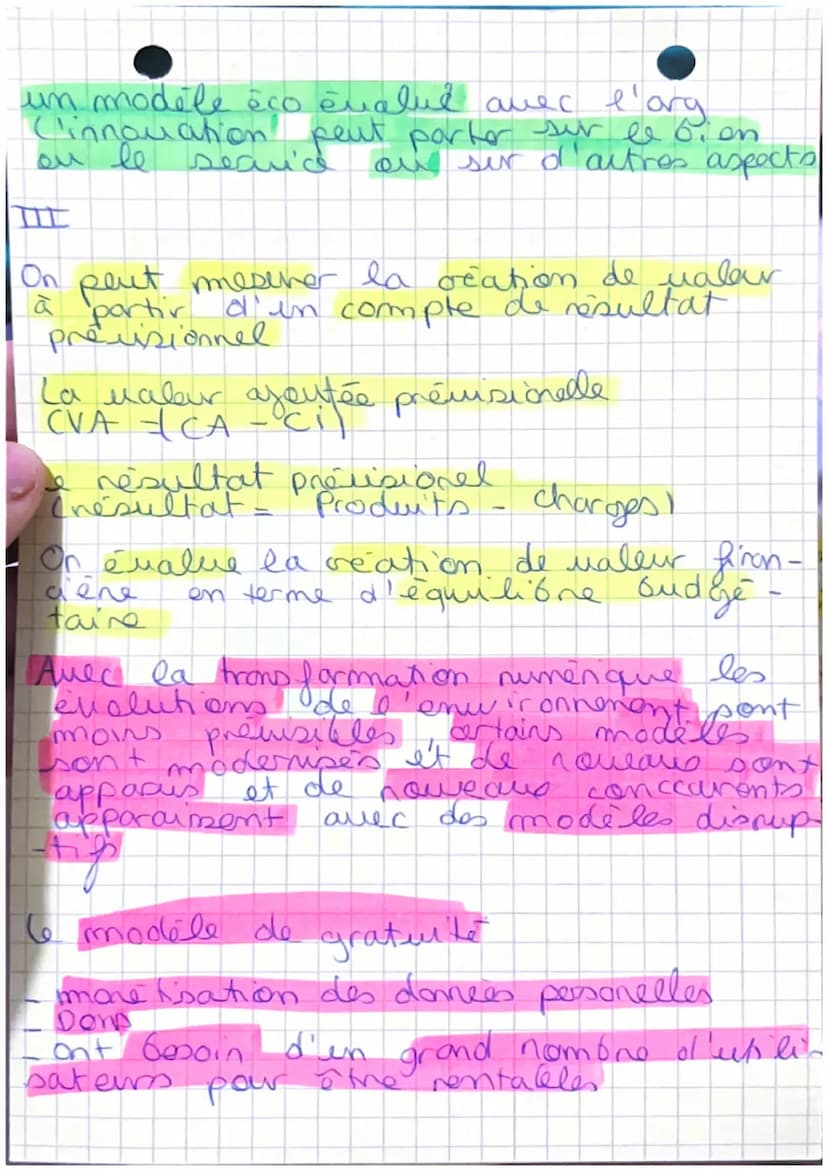 un modèle éco évalué avec l'arg
L'innovation peut porter sur le bien
ou le servic ou sur d'autres aspects
III
On peut mesurer la création de valeur
à partir d'un compte de résultat
prévisionnel
La valeur ajoutée prévisionelle
CVA = (CA - Ci)
e résultat prévisionel
(résultat = Produits - charges)
On évalue la création de valeur finan-
cière en terme d'équilibre budgé-
taire
Avec la transformation numérique les
évolutions de l'environnement sont
moins prévisibles, certains modèles
sont modernisés et de nouveaux sont
apparus et de nouveaux conccurents
apparaissent avec des modèles disrup-
-tifs
Le modèle de gratuité
- monétisation des données personelles
- Dons
- ont besoin d'un grand nombre d'utili-
sateurs pour être rentables